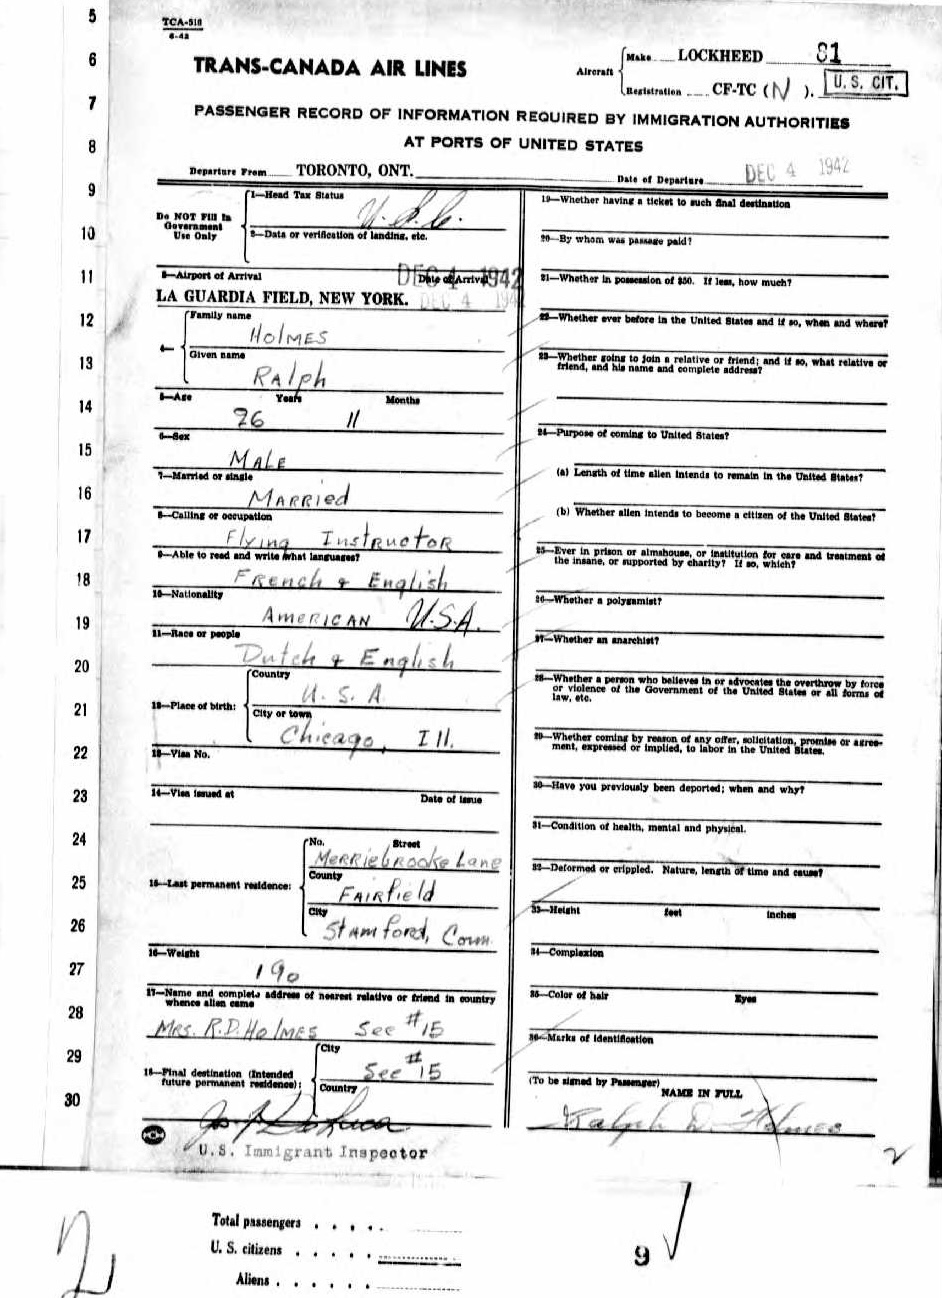 TCA-518
6-42
TRANS-CANADA AIR LINES
Aircraft
Make LOCKHEED 81
Registration CF-TC (N).
U. S. CIT.
PASSENGER RECORD OF INFORMATION REQUIRED BY IMMIGRATION AUTHORITIES
AT PORTS OF UNITED STATES
Departure From TORONTO, ONT.
Date of Departure DEC 4 1942
Do NOT Fill In
Government
Use Only
1—Head Tax Status
U.S.C.
2—Data or verification of landing, etc.
3—Airport of Arrival
Date of Arrival
DEC 4 1942
LA GUARDIA FIELD, NEW YORK.
DEC 4 194
4—
Family name
HOLMES
Given name
RALPH
5—Age Years Months
26 11
6—Sex
MALE
7—Married or single
MARRIED
8—Calling or occupation
Flying INSTRUCTOR
9—Able to read and write what languages?
FRENCH & ENGLISH
10—Nationality
AMERICAN U.S.A.
11—Race or people
Dutch & English
12—Place of birth:
Country
U. S. A
City or town
Chicago, Ill.
13—Visa No.
14—Visa issued at Date of issue
15—Last permanent residence:
No. Street
Merriebrooke Lane
County
FAIRfield
City
Stamford, Conn
16—Weight
190
17—Name and complete address of nearest relative or friend in country
whence alien came
MRS. R.D. HOLMES See #15
18—Final destination (Intended
future permanent residence):
City
See #15
Country
U.S. Immigrant Inspector
19—Whether having a ticket to such final destination
20—By whom was passage paid?
21—Whether in possession of $50. If less, how much?
22—Whether ever before in the United States and if so, when and where?
23—Whether going to join a relative or friend; and if so, what relative or
friend, and his name and complete address?
24—Purpose of coming to United States?
(a) Length of time alien intends to remain in the United States?
(b) Whether alien intends to become a citizen of the United States?
25—Ever in prison or almshouse, or institution for care and treatment of
the insane, or supported by charity? If so, which?
26—Whether a polygamist?
27—Whether an anarchist?
28—Whether a person who believes in or advocates the overthrow by force
or violence of the Government of the United States or all forms of
law, etc.
29—Whether coming by reason of any offer, solicitation, promise or agree-
ment, expressed or implied, to labor in the United States.
30—Have you previously been deported; when and why?
31—Condition of health, mental and physical.
32—Deformed or crippled. Nature, length of time and cause?
33—Height feet inches
34—Complexion
35—Color of hair Eyes
36—Marks of identification
(To be signed by Passenger)
NAME IN FULL
Ralph D. Holmes
2
5
6
7
8
9
10
11
12
13
14
15
16
17
18
19
20
21
22
23
24
25
26
27
28
29
30
Total passengers . . . . .
U. S. citizens . . . . .
Aliens . . . . . .
9